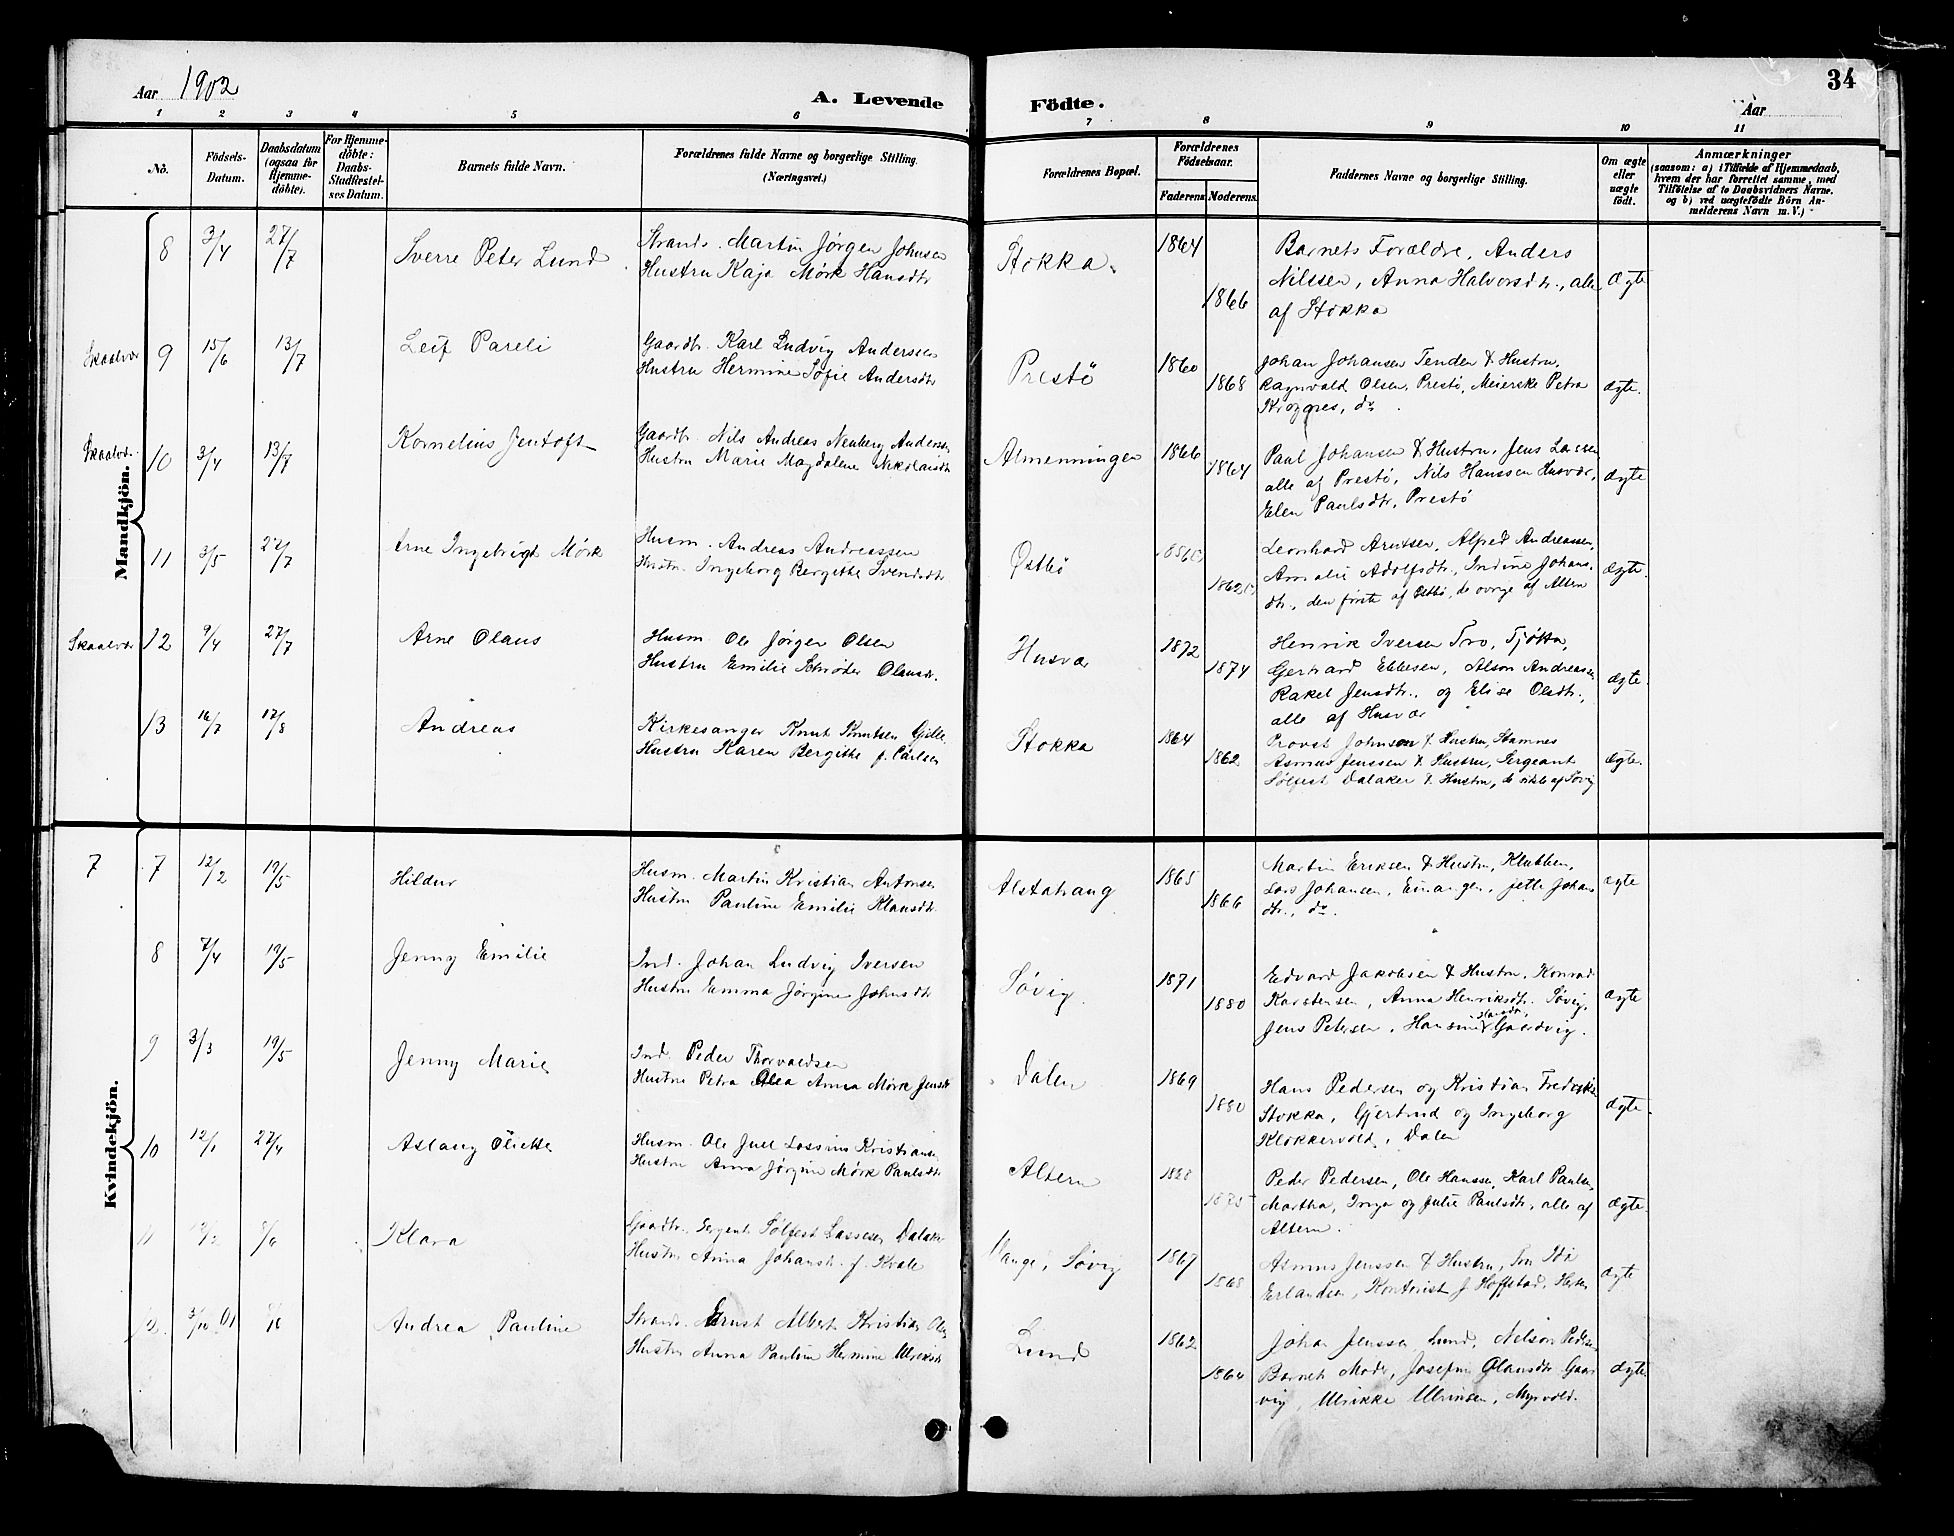 Aar 1902
A. Levende Födte.
Aar
34
1 2 3 4 5 6 7 8 9 10 11
No.
Födsels-Datum.
Daabsdatum (ogsaa for Hjemme-döbte).
For Hjemme-döbte: Daabs-Stadfæstel-ses Datum.
Barnets fulde Navn.
Forældrenes fulde Navne og borgerlige Stilling. (Næringsvei.)
Forældrenes Bopæl.
Forældrenes Födselsaar.
Faderens Moderens
Faddernes Navne og borgerlige Stilling.
Om ægte eller uægte födt.
Anmærkninger
(saasom: a) i Tilfælde af Hjemmedaab, hvem der har forrettet samme, med Tilföielse af to Daabsvidners Navne. og b) ved uægtefödte Börn An-melderens Navn m. V.)
Mandkjön.
8 3/4 27/7 Sverre Peter Lund
Strands. Martin Jørgen Johnsen
Hustru Kaja Mørk Hansdtr
Stokka. 1864 1866
Barnets Forældre, Anders
Nilssen, Anna Halvorsdtr., alle
af Stokka
Ægte
Skaalvær 9 15/6 13/7 Leif Pareli
Gaardbr. Karl Ludvig Anderssen
Hustru Hermine Sofie Andersdtr
Prestö 1860 1868
Johan Johansen Tenden & Hustru,
Ragnvald Olsen, Prestø, Meierske Petra
Krognes, do.
ægte.
Skaalv. 10 3/4 13/7 Kornelius Jentoft
Gaardbr. Nils Andreas Neuberg Anderss
Hustru Marie Magdalene Nikolaisdtr
Almenningen 1866 1864
Paul Johansen & Hustru, Jens Lassen
alle af Prestö, Nils Hanssen Husvær,
Elen Paulsdtr, Prestö
ægte
11 3/5 27/7 Arne Ingebrigt Mørk
Husm. Andreas Andreassen
Hustr. Ingeborg Bergitte Svendsdtr
Østbö
Leonhard Arntsen, Alfred Andreassen,
Amalie Adolfsdtr, Indine Johans-
dtr., den første af Østbö, de övrige af Altern
ægte.
Skaalvær 12 9/4 27/7 Arne Olaus
Husm. Ole Jørgen Olsen
Hustru Emilie Schrøder Olausdr.
Husvær 1872 1874
Henrik Iversen Tro, Tjøtta,
Gerhard Ebbesen, Alson Andreassen
Rakel Jensdtr., og Elise Olsdtr,
alle af Husvær
ægte.
13 16/7 17/8 Andreas
Kirkesanger Knut Knutsen Gjille
Hustru Karen Bergitte f. Carlsen
Stokka 1864 1862
Provst Johnson & Hustru, Stamnes
Asmus Jenssen & Hustru, Sergeant
Sølfest Dalaker & Hustru, de sidste af Søvig
Ægte.
Kvindekjön.
7 7 12/2 19/5 Hildur
Husm. Martin Kristian Antonsen
Hustru Pauline Emilie Klausdtr.
Alstahaug 1865 1866
Martin Eriksen & Hustru, Klubben,
Lars Johansen, Einangen, Jette Johans
dtr., do.
ægte
8 7/4 19/5 Jenny Emilie
Ind. Johan Ludvig Iversen
Hustru Emma Jørgine Johnsdtr
Søvig 1871 1880
Edvard Jakobsen & Hustru, Konrad
Karstensen, Anna Henriksdtr. Søvig,
Jens Petersen, Hansine Gaardvig.
ægte
9 3/3 19/5 Jenny Marie
Ind. Peder Thorvaldsen
Hustru Petra Olea Anna Mørk Jensdtr
Dalen 1869 1880
Hans Pedersen og Kristian Fredriks
Stokka, Gjertrud og Ingeborg
Klokkervold, Dalen
ægte
10 12/1 27/4 Aslaug Olette
Husm. Ole Juel Lassius Kristiansen
Hustru Anna Jørgine Mørk Paulsdtr
Altern 1875
Peder Pedersen, Ole Hanssen, Karl Paulsen,
Martha, Inga og Julie Paulsdtr, alle af
Altern.
ægte.
11 Klara
Gaardbr. Sergeant Sølfest Lassesen Dalaker
Hustru Anna Johansdr. f. Kvale
Vange, Søvig 1867 1868
Asmus Jenssen & Hustru,
Erlandsen, Kontorist J Hoffstad,
ægte
12. 3/10 01 Andrea Pauline
Strands. Ernst Albert Kristian Ols
Hustru Anna Pauline Hermine Ulriksdtr
Lund 1862 1864
Johan Jenssen Lund, Nelson Peders
Barnets Moder, Josefine Olausdtr Gaar
vig, Ulrikke Ulriksen, Myrvold.
ægte